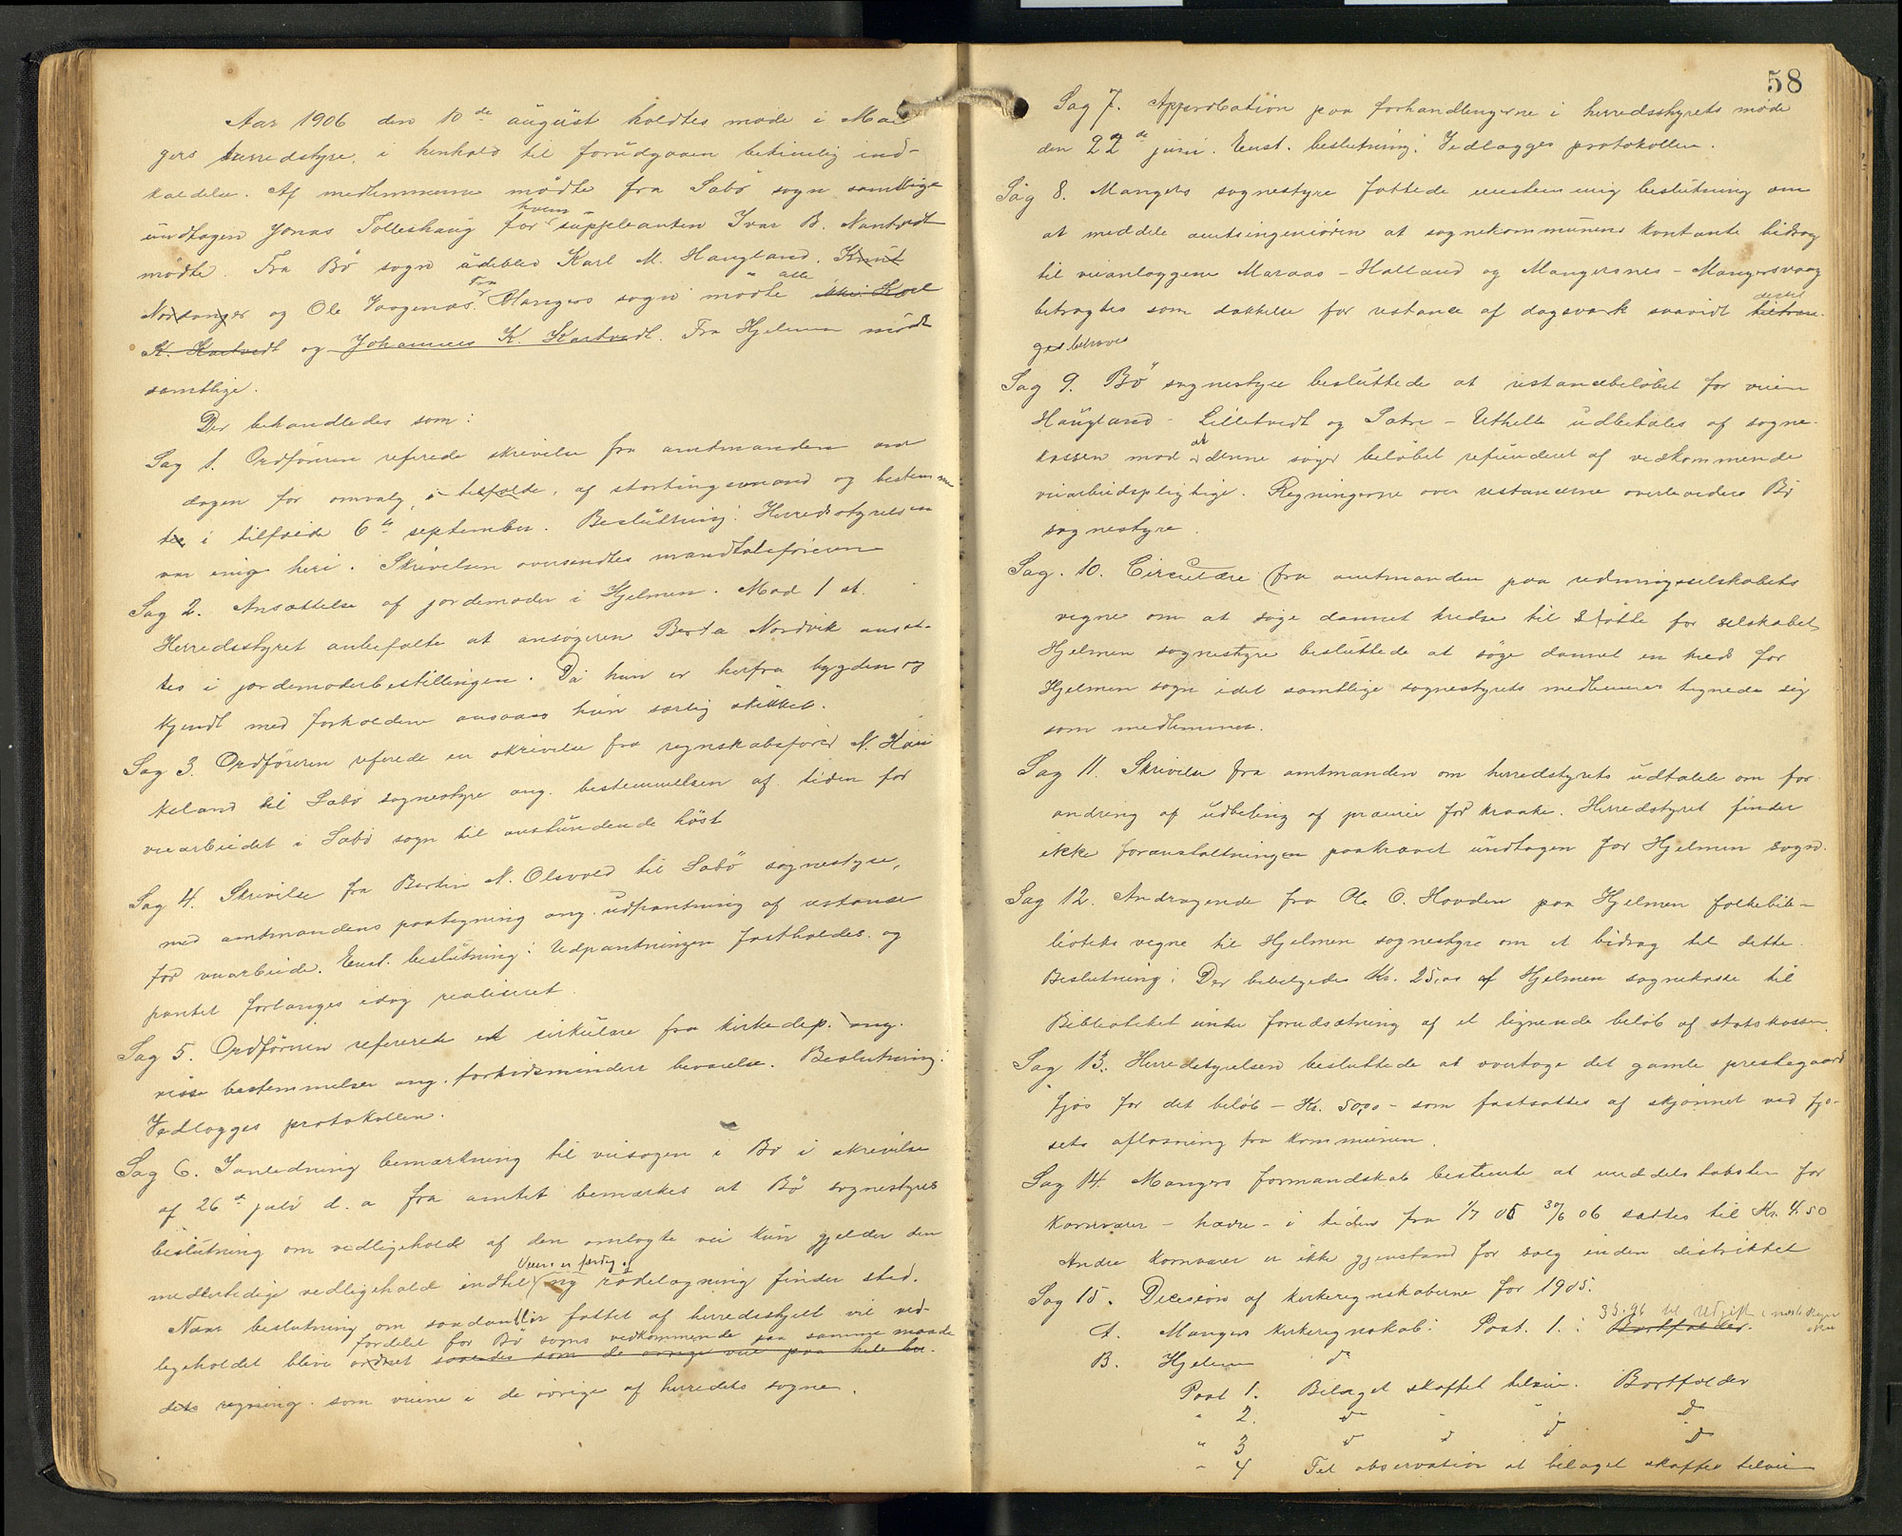 Aar 1906 den 10de august holdtes møde i Man
gers herredstyre, i henhold til forudgaaen betimelig ind-
kaldelse. Af medlemmerne mødte fra Sæbø sogn samtlige
undtagen Jonas Tolleshaug for hvem suppleanten Ivar B. Nontvedt
mødte. Fra Bø sogn udeblev Karl M. Haugland, Knut
Nordanger og Ole Vaagenæs. Fra Mangers sogn mødte alle ikke Karl
K. Kartvedt og Johannes K. Kartvedt. Fra Hjelmen mødt
samtlige.
Der behandledes som:
Sag 1. Ordføreren referede skrivelse fra amtmanden om
dagen for omvalg, i tilfælde, af stortingsmand og bestemme
tes i tilfælde 6te september. Beslutning: Herredsstyrelsen
var enig heri. Skrivelsen oversendtes mandtalsføreren
Sag 2. Ansættelse af jordemoder i Hjelmen. Mod 1 st.
Herredsstyret anbefalte at ansøgeren Berta Nordvik ansæt-
tes i jordemoderbestillingen. Da hun er herfra bygden og
kjendt med forholdene ansaaes hun særlig skikket.
Sag 3. Ordføreren referede en skrivelse fra regnskabsfører N. Hau
keland til Sæbø sognestyre ang. bestemmelsen af tiden for
veiarbeidet i Sæbø sogn til anstundende høst
Sag 4. Skrivelse fra Bertin N. Olsvold til Sæbø sognestyre,
med amtmandens paategning ang. udpantning af restanse
for veiarbeide. Enst. beslutning: Udpantningen fastholdes og
pantet forlanges idag realiseret.
Sag 5. Ordføreren refererede et cirkulære fra kirkedep. ang.
visse bestemmelser ang. fortidsminders bevarelse. Beslutning:
Vedlægges protokollen.
Sag 6. I anledning bemærkning til veisagen i Bø i skrivelse
af 26de juli d. a fra amtet bemærkes at Bø sognestyres
beslutning om vedligehold af den omlagte vei kun gjelder den
midlertidige vedligehold indtil Veien er færdig og ny rodelægning finder sted.
Naar beslutning om saadan blir fattet af herredsstyret vil ved-
fordelt for Bø sogns vedkommende paa samme maade
ligeholdet blive ordnet saaledes som de øvrige veie paa hele her-
dets regning som veiene i de øvrige af herredets sogne.
58
Sag 7. Approbation paa forhandlingerne i herredsstyrets møde
den 22de juni. Enst. beslutning: Vedlægges protokollen.
Sag 8. Mangers sognestyre fattede enstemmig beslutning om
at meddele amtsingeniøren at sognekommunens kontante bidrag
til veianlæggene Maraas - Halland og Mangersnes - Mangersvaag
betragtes som dækkelse for restance af dagsværk saavidt dertil tiltræn-
ges behøves
Sag 9. Bø sognestyre besluttede at restancebeløbet for veien
Haugland - Lilletvedt og Sætre - Uthelle udbetales af sogne-
kassen mod at denne søger beløbet refunderet af vedkommende
veiarbeidspligtige. Regningerne over restancerne overleveres Bø
sognestyre.
Sag. 10. Circulære fra amtmanden paa redningsselskabets
vegne om at søge dannet kredse til støtte for selskabet
Hjelmen sognestyre besluttede at søge dannet en kreds for
Hjelmen sogn idet samtlige sognestyrets medlemmer tegnede sig
som medlemmer.
Sag 11. Skrivelse fra amtmanden om herredstyrets udtalelse om for
andring af udbetling af præmie for kraake. Herredstyret finder
ikke foranstaltningen paakrævet undtagen for Hjelmen sogn.
Sag 12. Andragende fra Ole O. Hovden paa Hjelmen folkebib-
lioteks vegne til Hjelmen sognestyre om et bidrag til dette.
Beslutning: Der bevilgedes Kr. 25,00 af Hjelmen sognekasse til
Biblioteket under forudsætning af et lignende beløb af statskassen.
Sag 13. Herredstyrelsen besluttede at overtage det gamle prestegaards
fjøs for det beløb - Kr. 50,00 - som fastsattes af skjønnet ved fjø-
sets afløsning fra kommunen.
Sag 14. Mangers formandskab bestemte at middelstaksten for
kornvarer - havre - i tiden fra 1/7 05 30/6 06 sættes til Kr. 4.50
Andre kornvarer er ikke gjenstand for salg inden distriktet
Sag 15. Decision af kirkeregnskaberne for 1905.
A. Mangers kirkeregnskab: Post. 1.: 33,96 til Udgift i næste Regn Bortfalder.
B. Hjelmen do
Post 1. Bilaget skaffet tilveie. Bortfalder
" 2. do " do do
" 3 do do do do
" 4 Til observation at bilaget skaffes tilveie